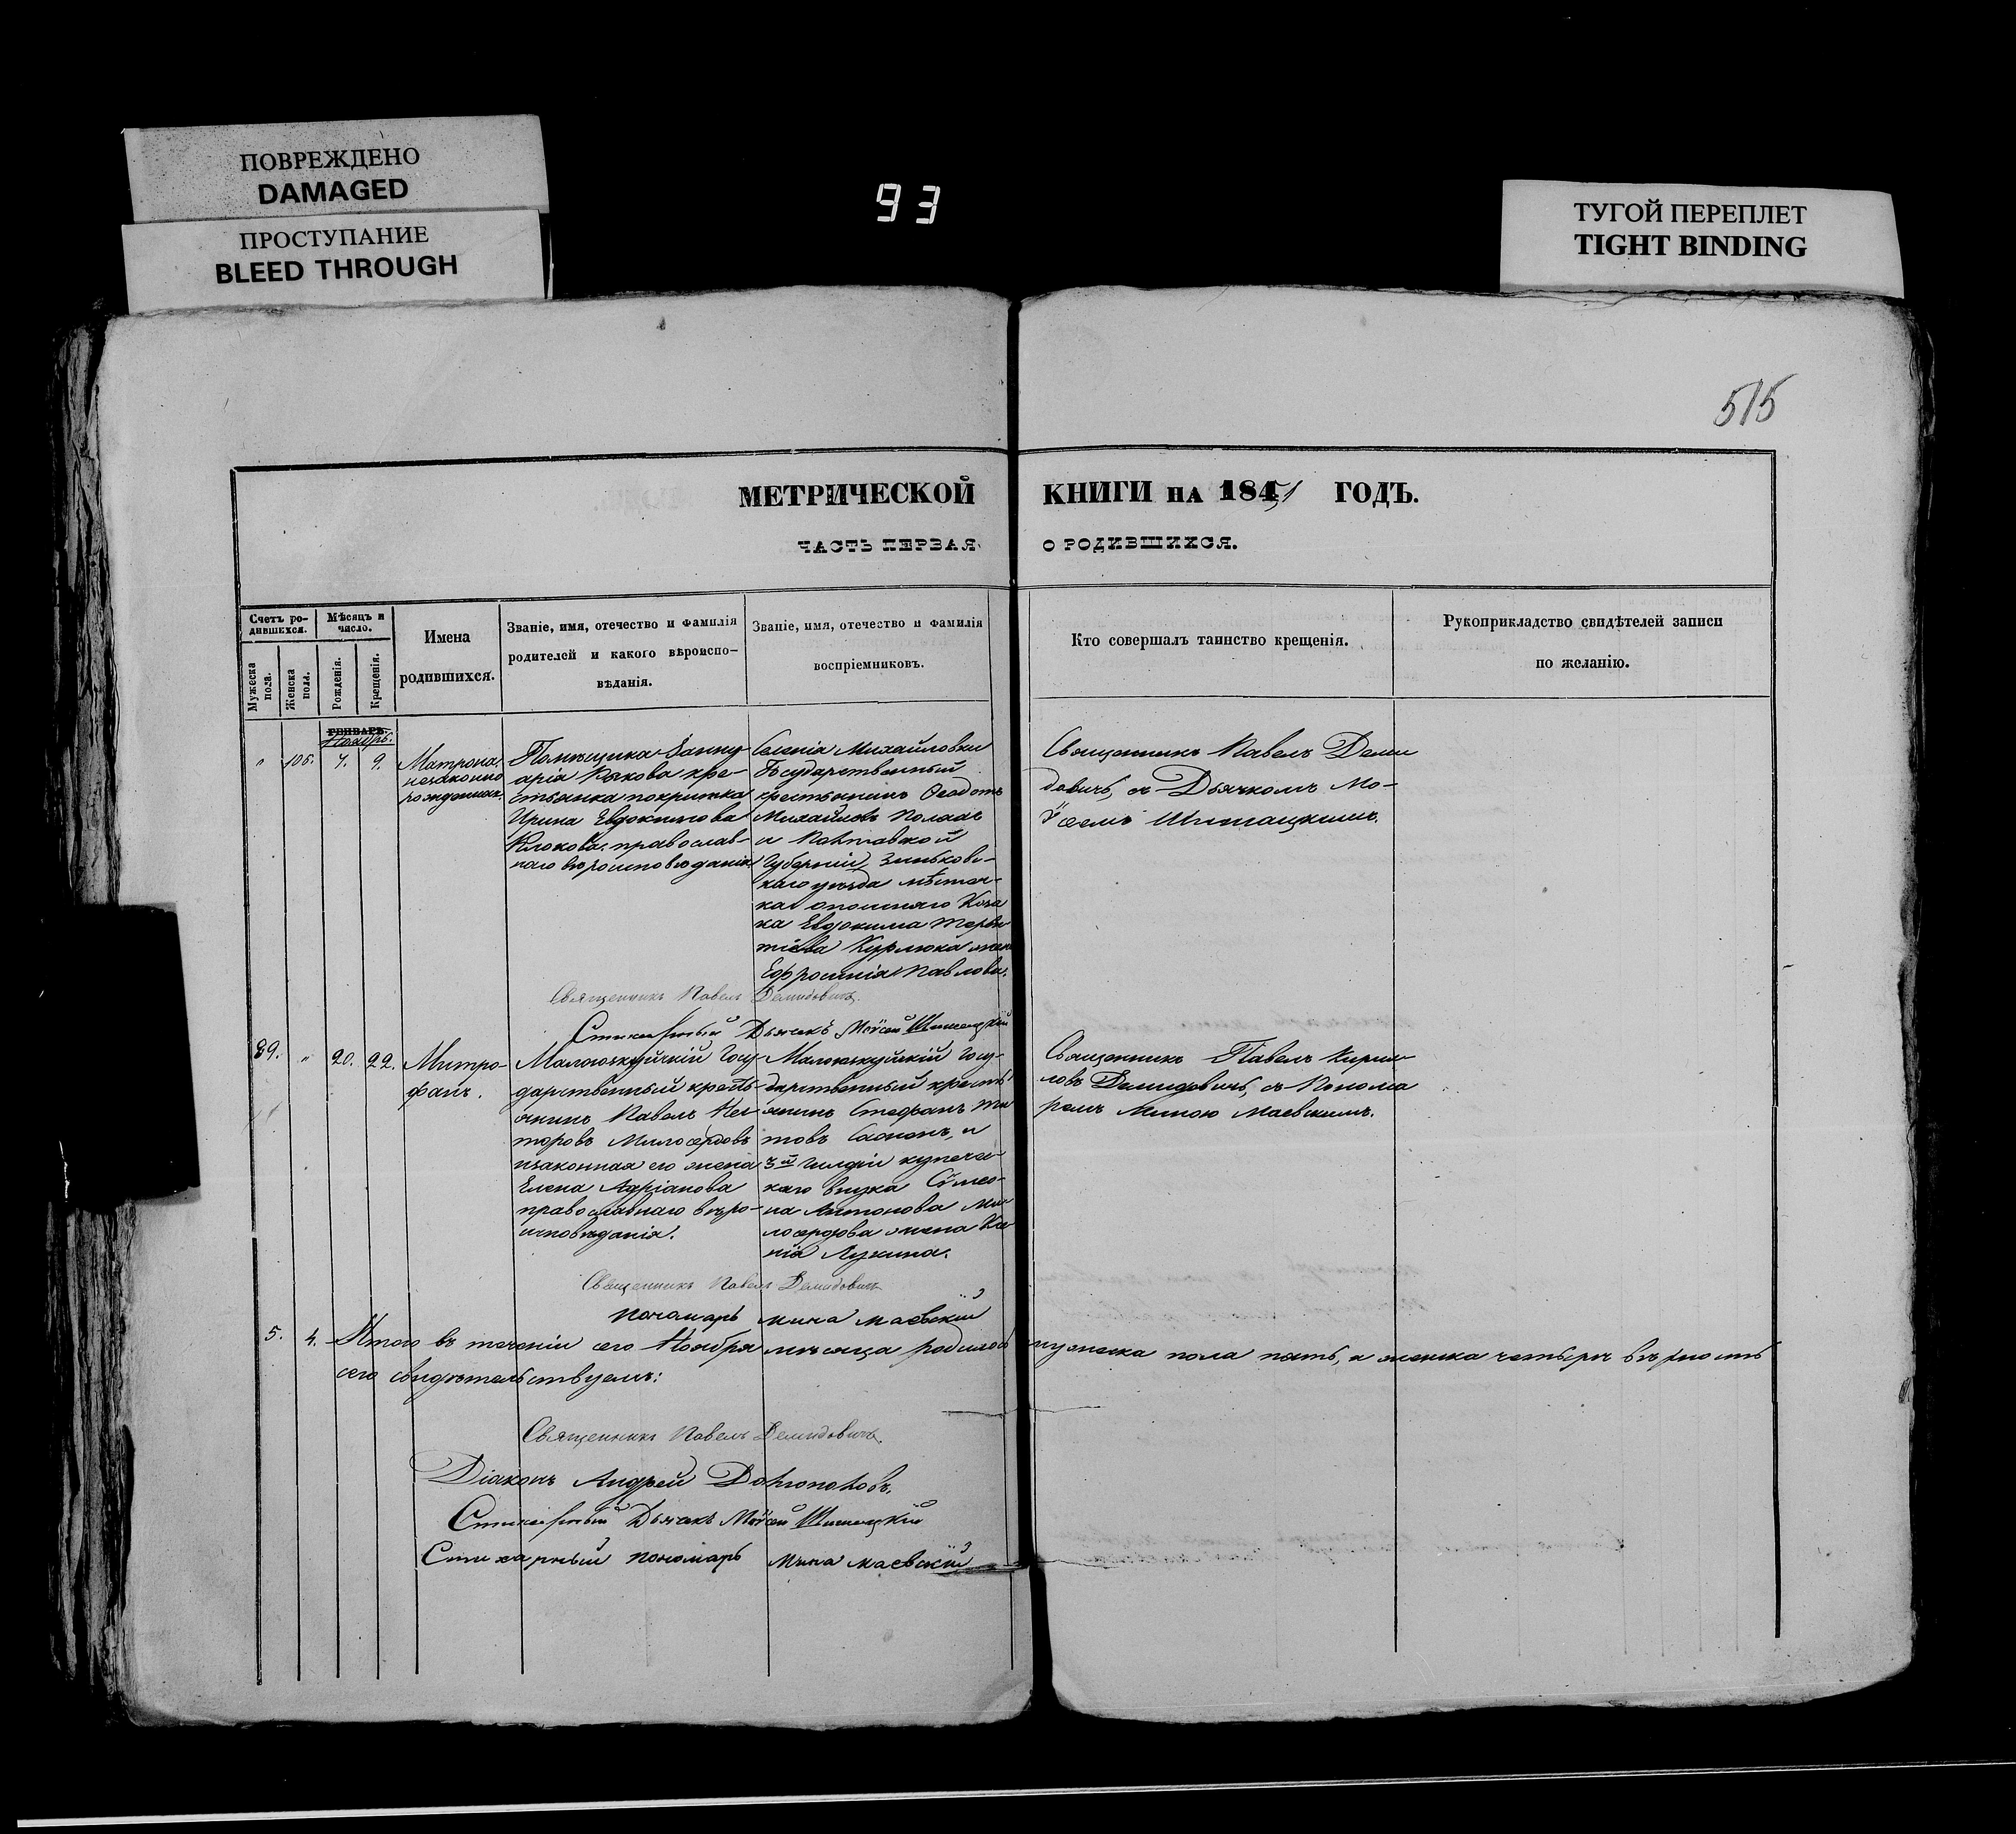 ПОВРЕЖДЕНО
DAMAGED
ПРОСТУПАНИЕ
BLEED THROUGH
93
ТУГОЙ ПЕРЕПЛЕТ
TIGHT BINDING
515
МЕТРИЧЕСКОЙ КНИГИ НА 1851 ГОДЪ.
ЧАСТЬ ПЕРВАЯ О РОДИВШИХСЯ.
Счетъ ро-
дившихся.
Мужеска
пола.
Женска
пола.
Мѣсяцъ и
число.
Рожденія.
Крещенія.
Имена
родившихся.
Званіе, имя, отечество и фамилія
родителей и какого вѣроиспо-
вѣданія.
Званіе, имя, отечество и фамилія
воспріемниковъ.
Кто совершалъ таинство крещенія.
Рукоприкладство свидѣтелей записи
по желанію.
ГЕНВАРЬ.
Ноябрь.
" 106. 7. 9.
Матрона,
незаконно
рожденная.
Помѣщика
арія кре-
стьянка покритка
Ирина Евдокимова
Клюкова. православ-
наго вѣроисповѣданія.
Михайловки
Государственный
крестьянинъ Ѳеодотъ
Михайловъ
и Полтавской
Губерніи, Зиньковс-
каго уѣзда мѣстеч-
ка Опошняго Коза
ка Евдокима Терен
тіева жена
Евфросинія Павлова.
Священникъ Павелъ Деми
довичъ, съ Дьячкомъ Мо-
ѵсеемъ
Священникъ Павелъ Демидовичъ.
Стихарный Дьячекъ Моѵсей
89. " 20. 22.
Митро-
фанъ.
Госу-
дарственный кресть-
янинъ Павелъ Нес-
торовъ Милосердовъ
и законная его жена
Елена Адріанова
православнаго вѣро-
исповѣданія.
Госу-
дарственный кресть-
янинъ Стефанъ Ти
товъ и
3й гильдіи купечес-
каго внука Сѵмео-
на Антонова Ми-
лосердова жена Ксе
нія Лукина.
Священникъ Павелъ Кирил-
ловъ Демидовичъ, съ Понома
ремъ Миною Маевскимъ.
Священникъ Павелъ Демидовичъ
Пономарь Мина Маевскій
5. 4. Итого въ теченіи сего Ноября мѣсяца родилось мужеска пола пять, а женска четыре вѣрность
сего свидѣтельствуемъ:
Священникъ Павелъ Демидовичъ.
Діаконъ Андрей
Стихарный Дьячекъ Моѵсей
Стихарный пономарь Мина Маевскій